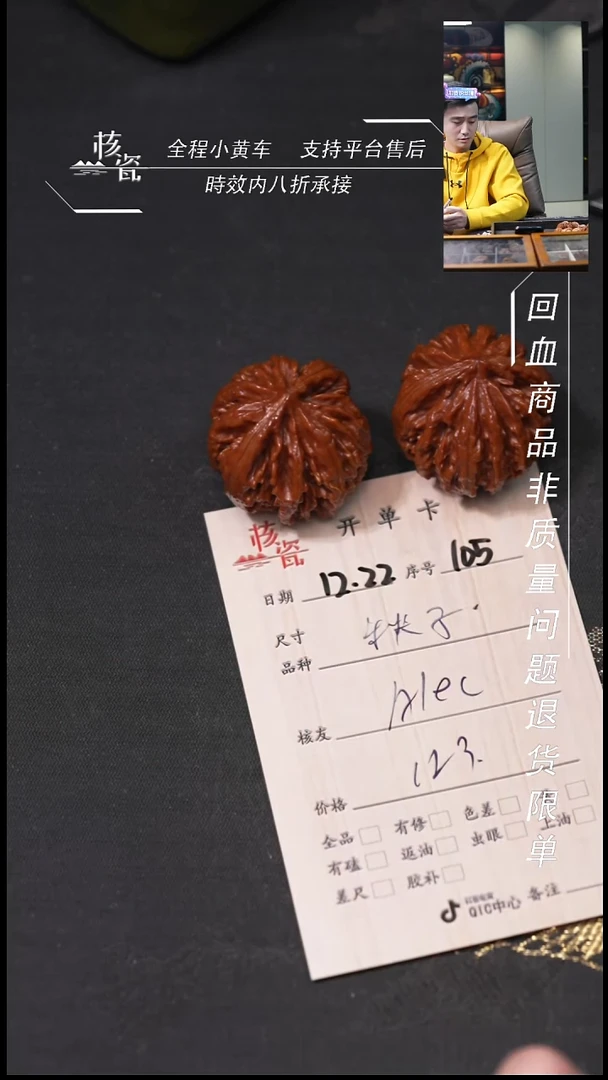 核瓷
全程小黄车 支持平台售后
時效内八折承接
回血商品非质量问题退货限单
核瓷
开单卡
日期 12.22 序号 105
尺寸
品种
核友 Alec
价格 123.
全品 有修 色差
有磕 返油 虫眼 上油
差尺 胶补
QIC中心 备注